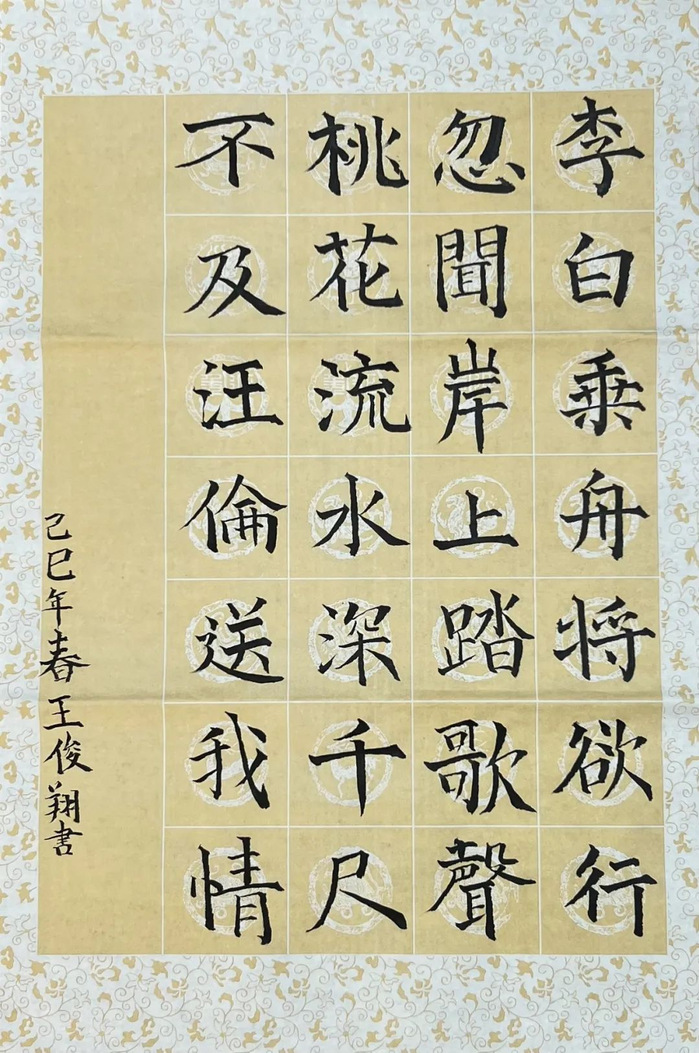 李白乗舟将欲行
忽聞岸上踏歌聲
桃花流水深千尺
不及汪倫送我情
己巳年春王俊翔書